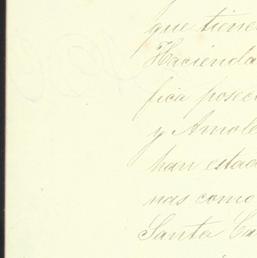 que tiene
Hacienda
fica posec
y Amole
han estad
nas como
Santa Ca